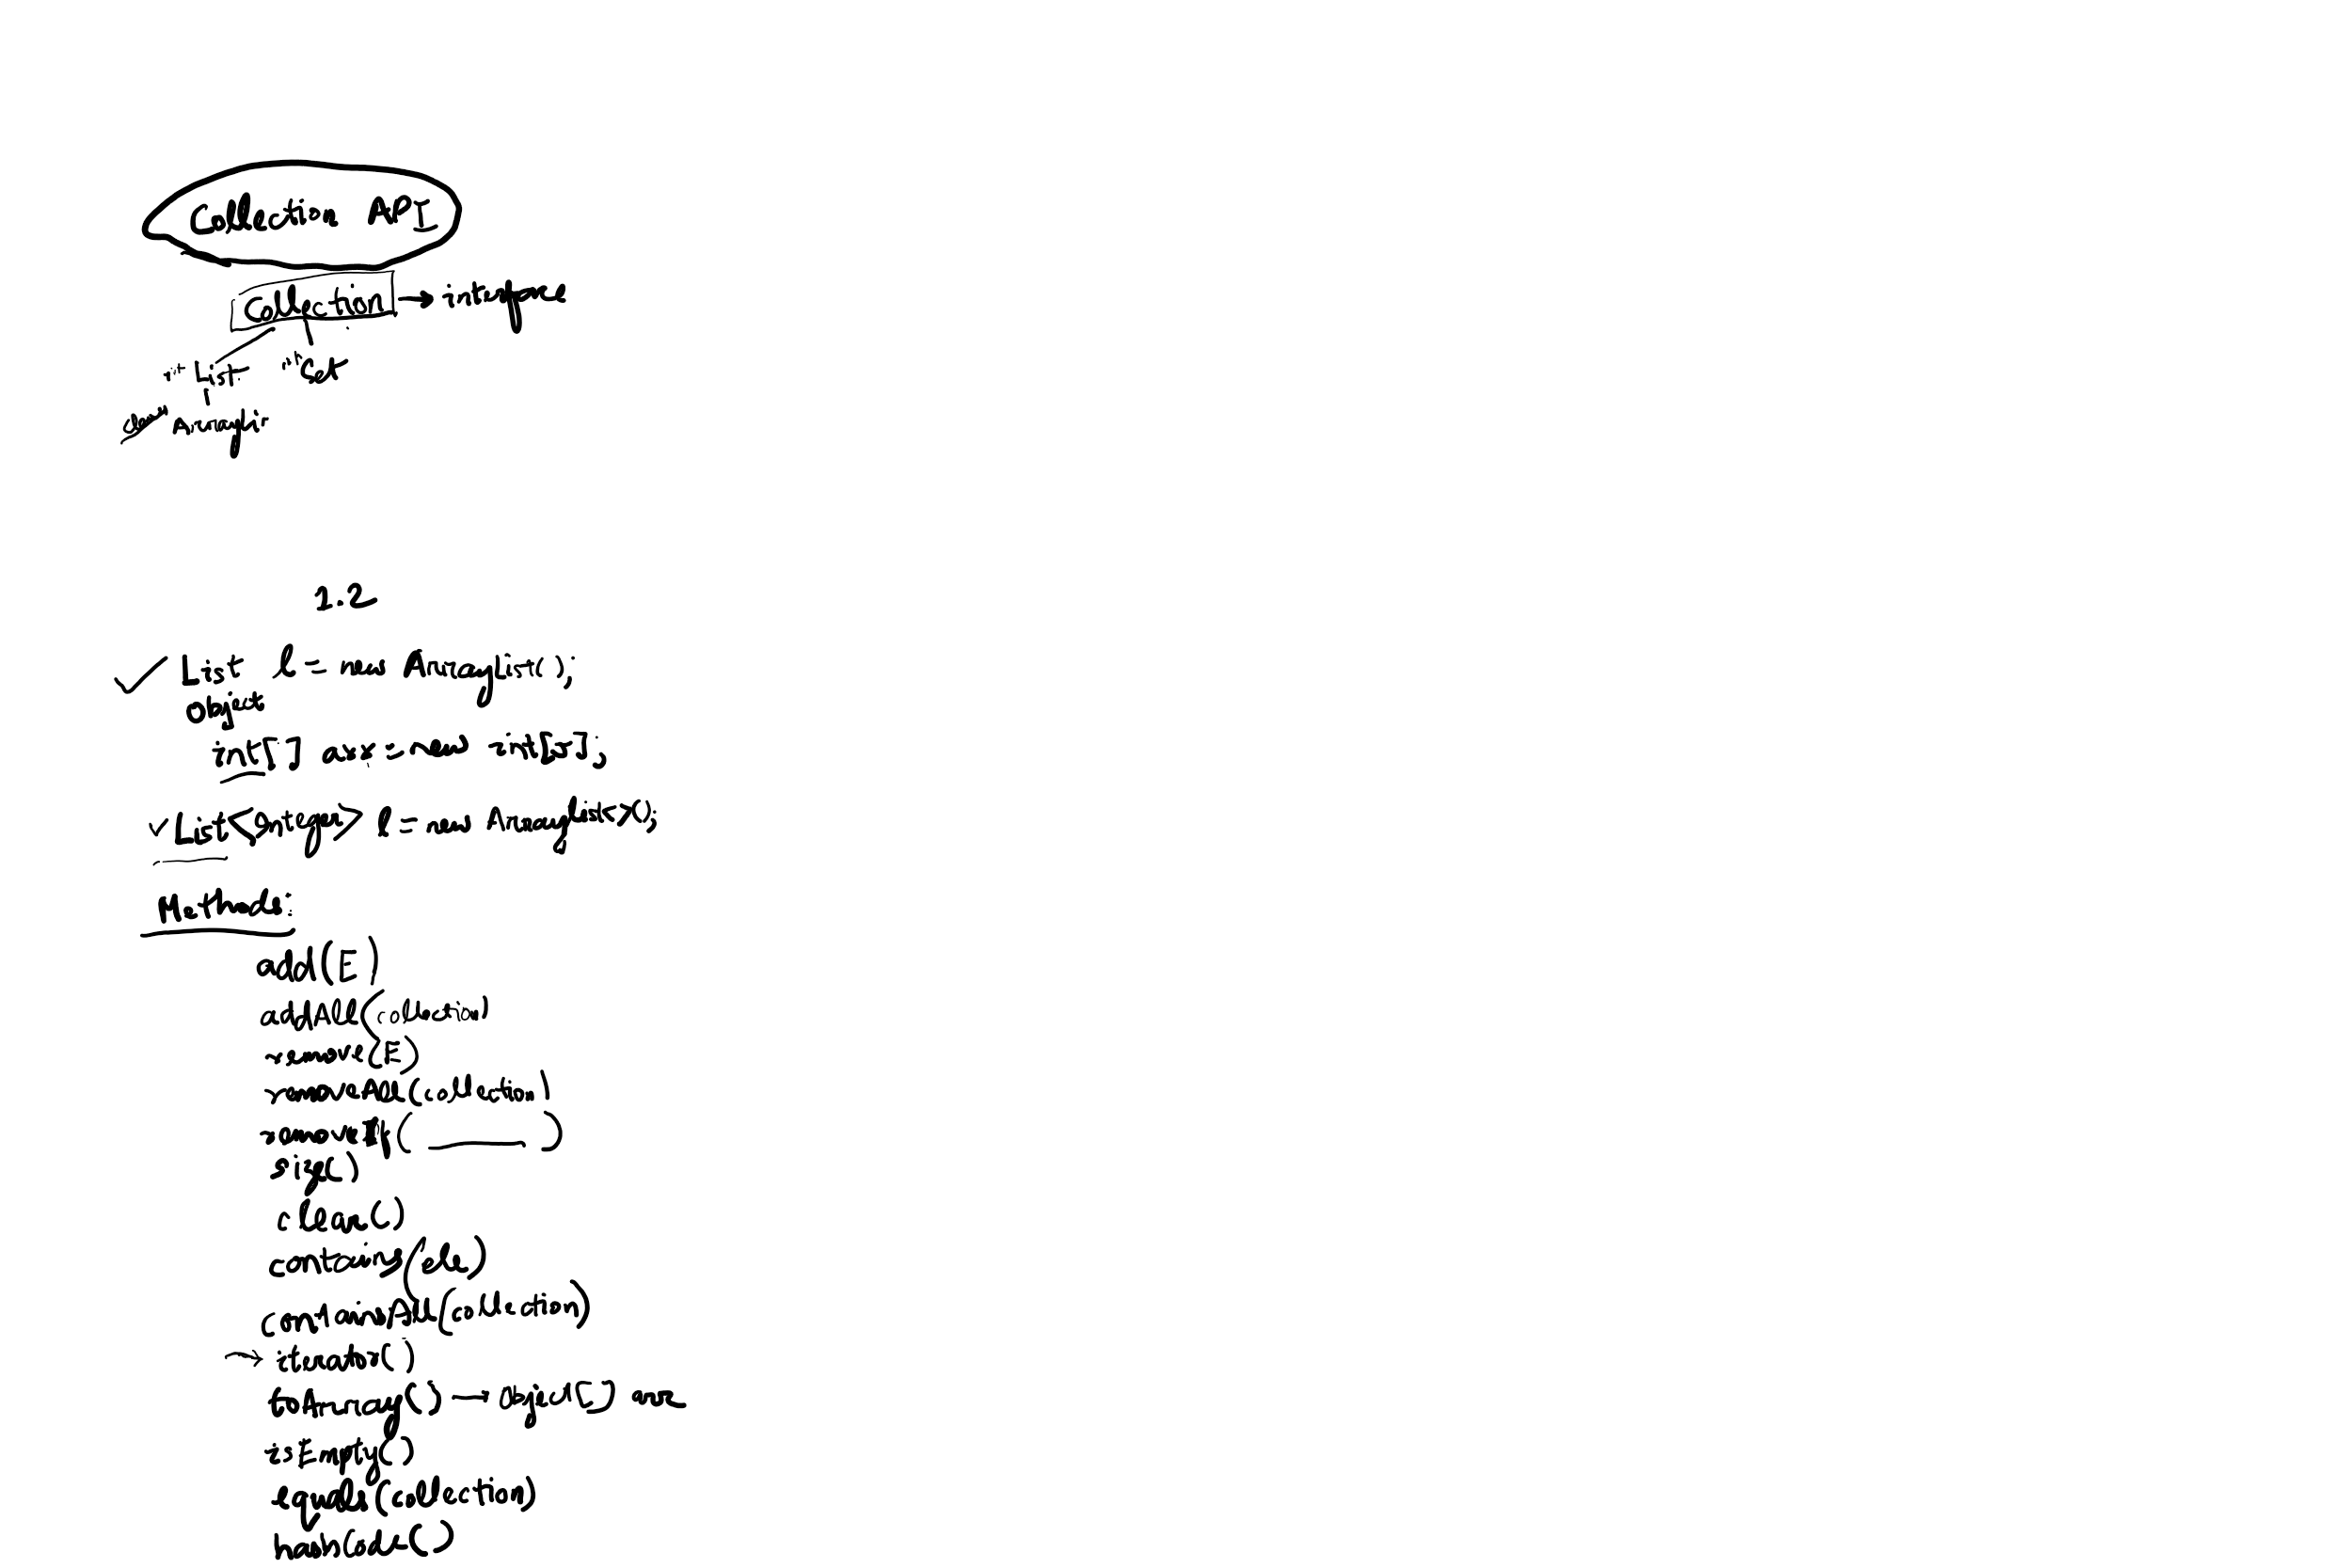 Collection API
Collection → interface
int List int Set
class ArrayLis
1.2
✓ List l = new ArrayList();
Object
int[] arr = new int[5];
✓ List<Integer> l = new ArrayList<>();
Methods:
add(E)
addAll(collection)
remove(E)
removeAll(collection)
removeIf( ______ )
size()
clear()
contains(ele)
containsAll(collection)
→ iterator()
toArray() → Object[] arr
isEmpty()
equals(collection)
hashCode()